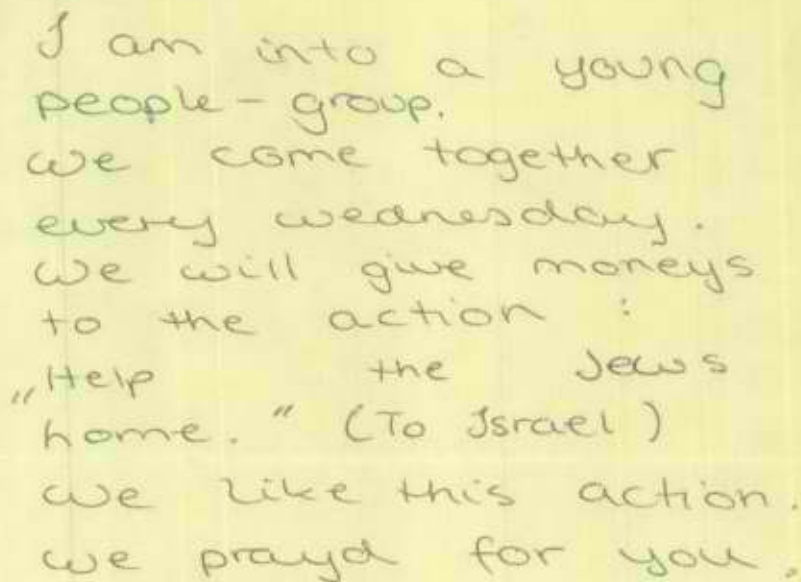 I am into a young
people-group.
we come together
every wednesday.
we will give moneys
to the action :
„Help the Jews
home." (To Israel)
we like this action.
we prayd for you.